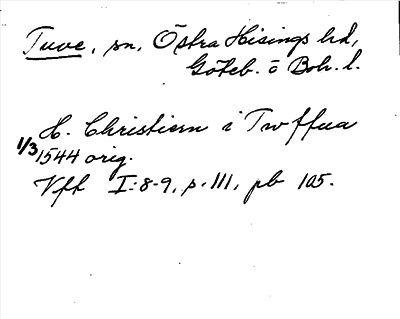 Tuve, sn, Östra Hisings hd,
Göteb. o Boh. l.
H. Christiern i Twffua
1/3 1544 orig.
Vfh I:8-9, s. 111, pb 105.